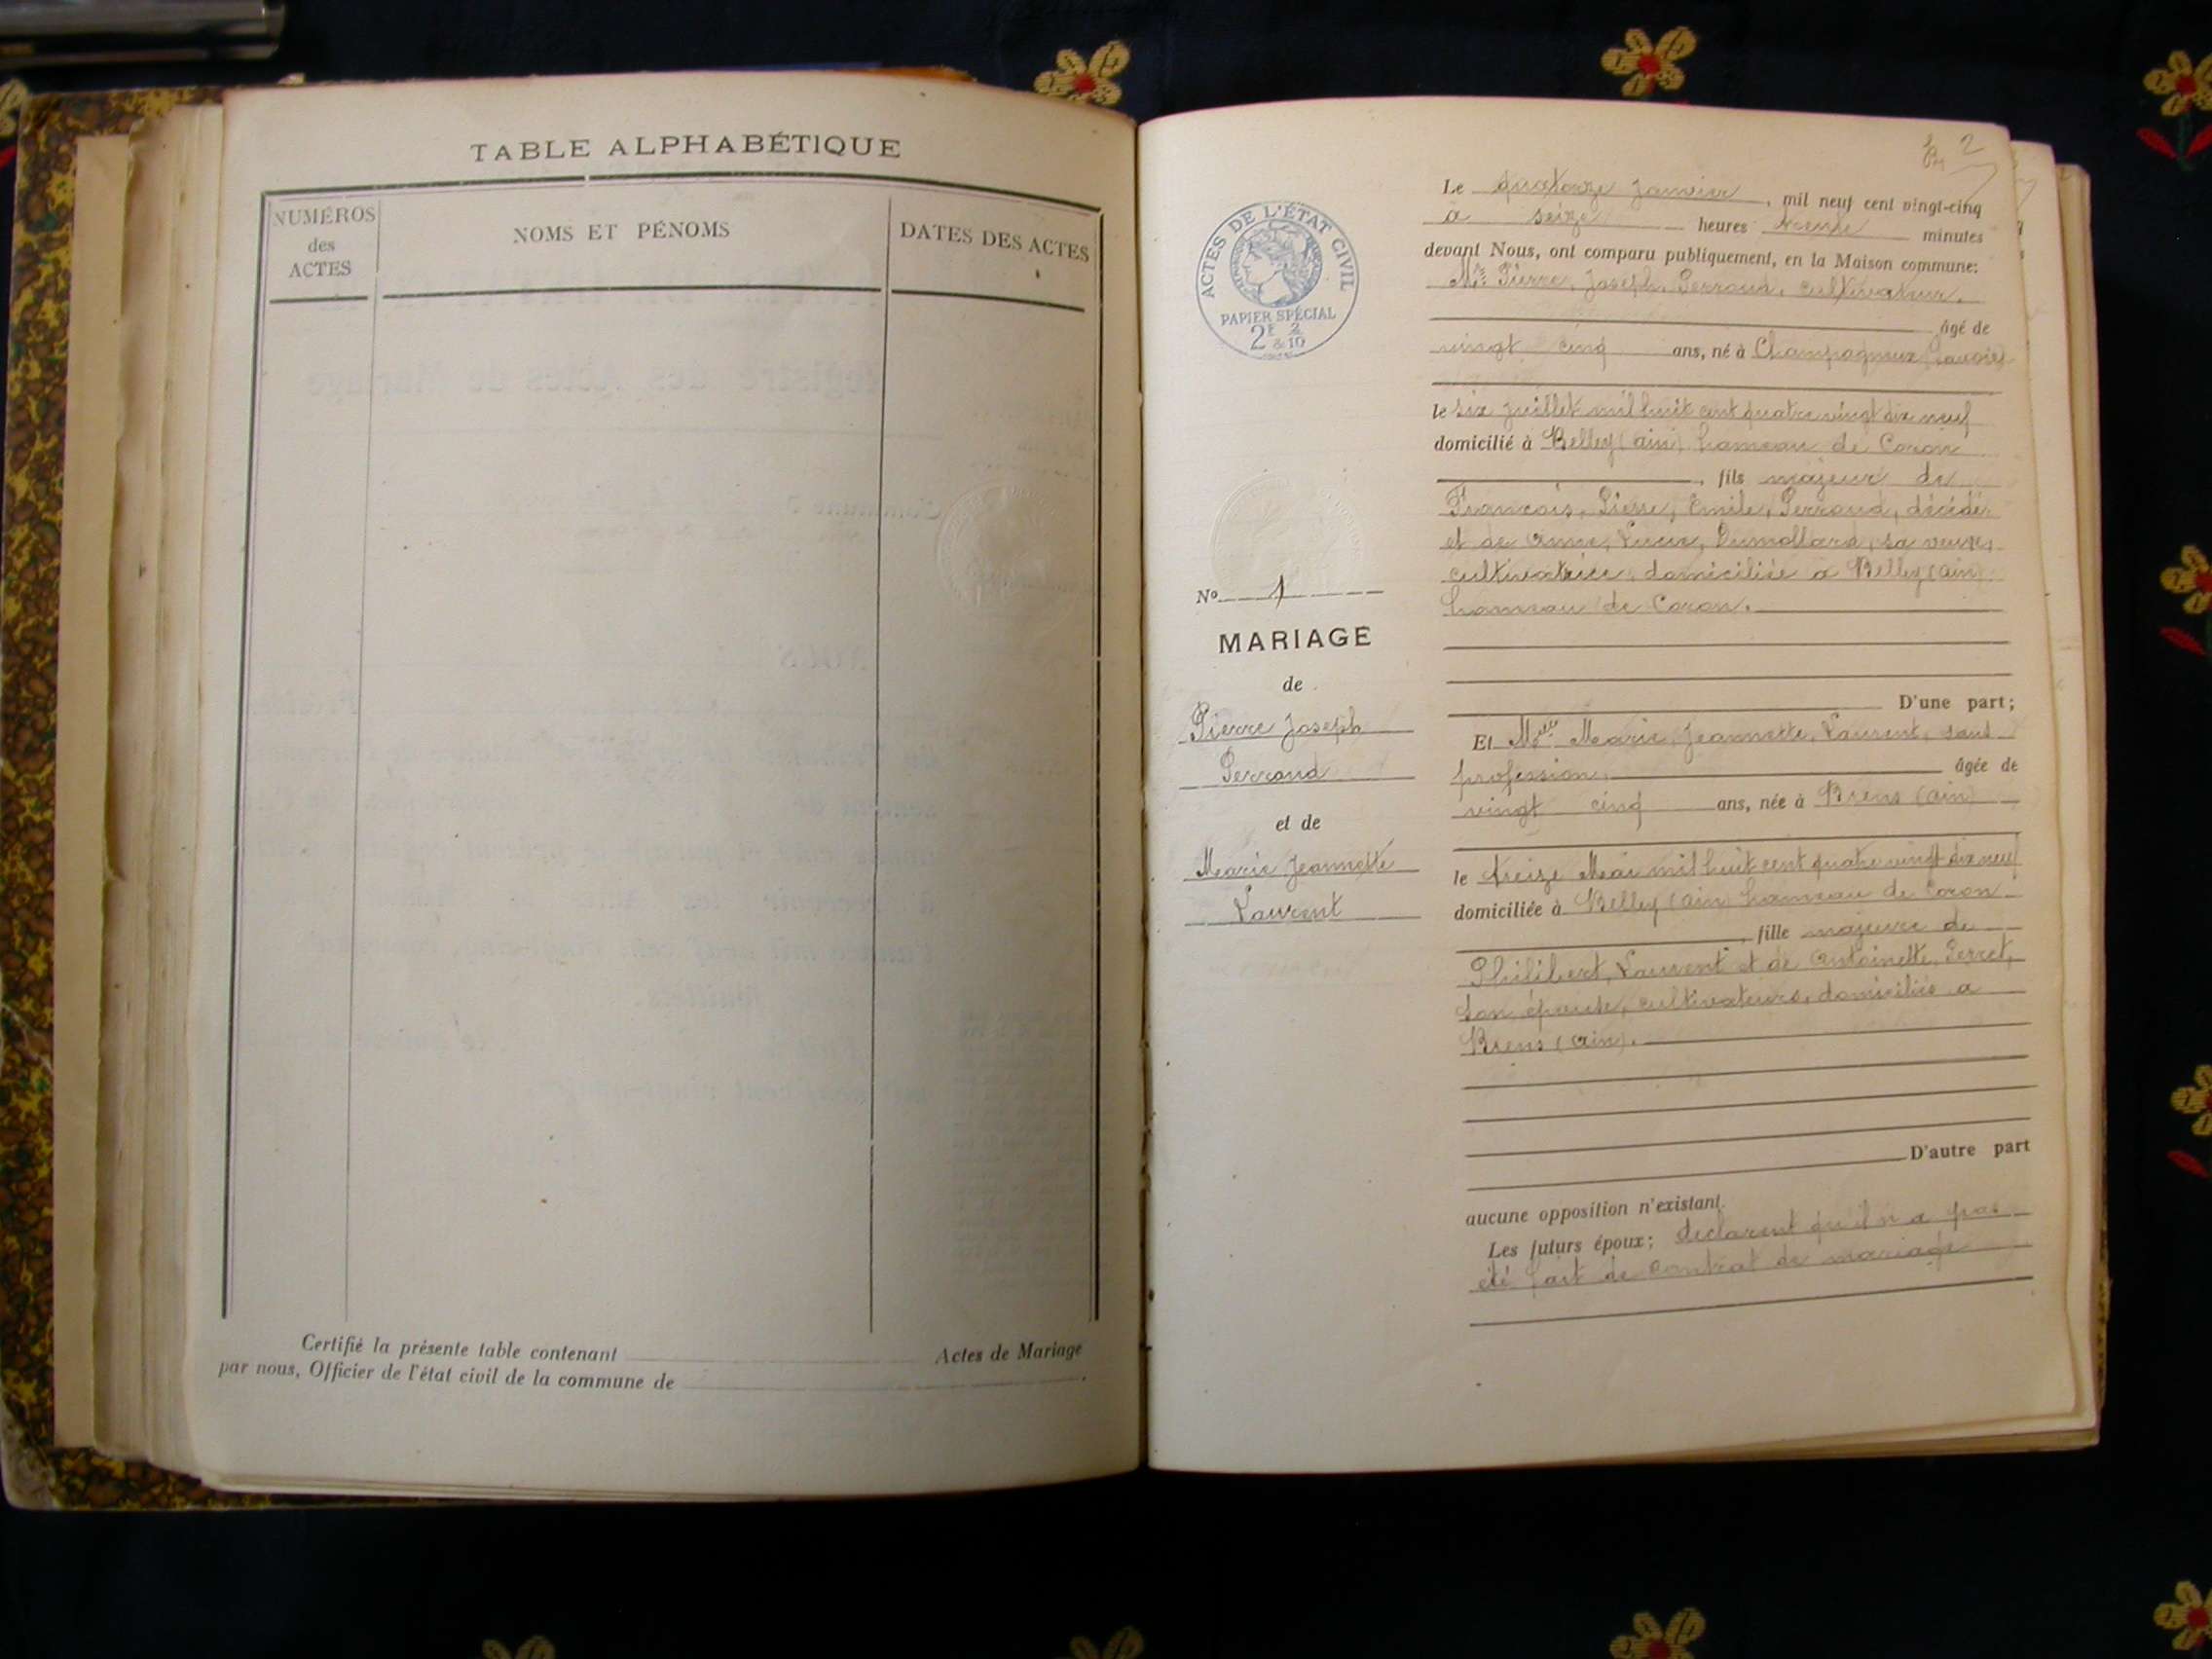 TABLE ALPHABÉTIQUE
NUMÉROS
des
ACTES
NOMS ET PÉNOMS
DATES DES ACTES
Certifié la présente table contenant Actes de Mariage
par nous, Officier de l'état civil de la commune de
2
ACTES DE L'ÉTAT CIVIL
PAPIER SPÉCIAL
2F & 2/10
No 1
MARIAGE
de
Pierre Joseph
Perroud
et de
Marie Jeannette
Laurent
Le quatorze Janvier, mil neuf cent vingt-cinq
à seize heures trente minutes
devant Nous, ont comparu publiquement, en la Maison commune:
Mr Pierre, Joseph, Perroud, cultivateur,
âgé de
vingt cinq ans, né à Champagneux (Savoie)
le six juillet mil huit cent quatre vingt dix neuf
domicilié à Belley (ain) hameau de Coron
, fils majeur de
François, Pierre, Emile, Perroud, décédé
et de Anne, Lucie, Dumollard, sa veuve,
cultivatrice, domiciliée a Belley (ain)
hameau de Coron.
D'une part;
Et Melle Marie, Jeannette, Laurent, sans
profession, âgée de
vingt cinq ans, née à Brens (ain)
le treize Mai mil huit cent quatre vingt dix neuf
domiciliée à Belley (ain) hameau de Coron
, fille majeure de
Philibert, Laurent et de Antoinette, Perret,
son épouse, cultivateurs, domiciliés a
Brens (ain).
D'autre part
aucune opposition n'existant.
Les futurs époux; declarent qu'il n'a pas
été fait de contrat de mariage